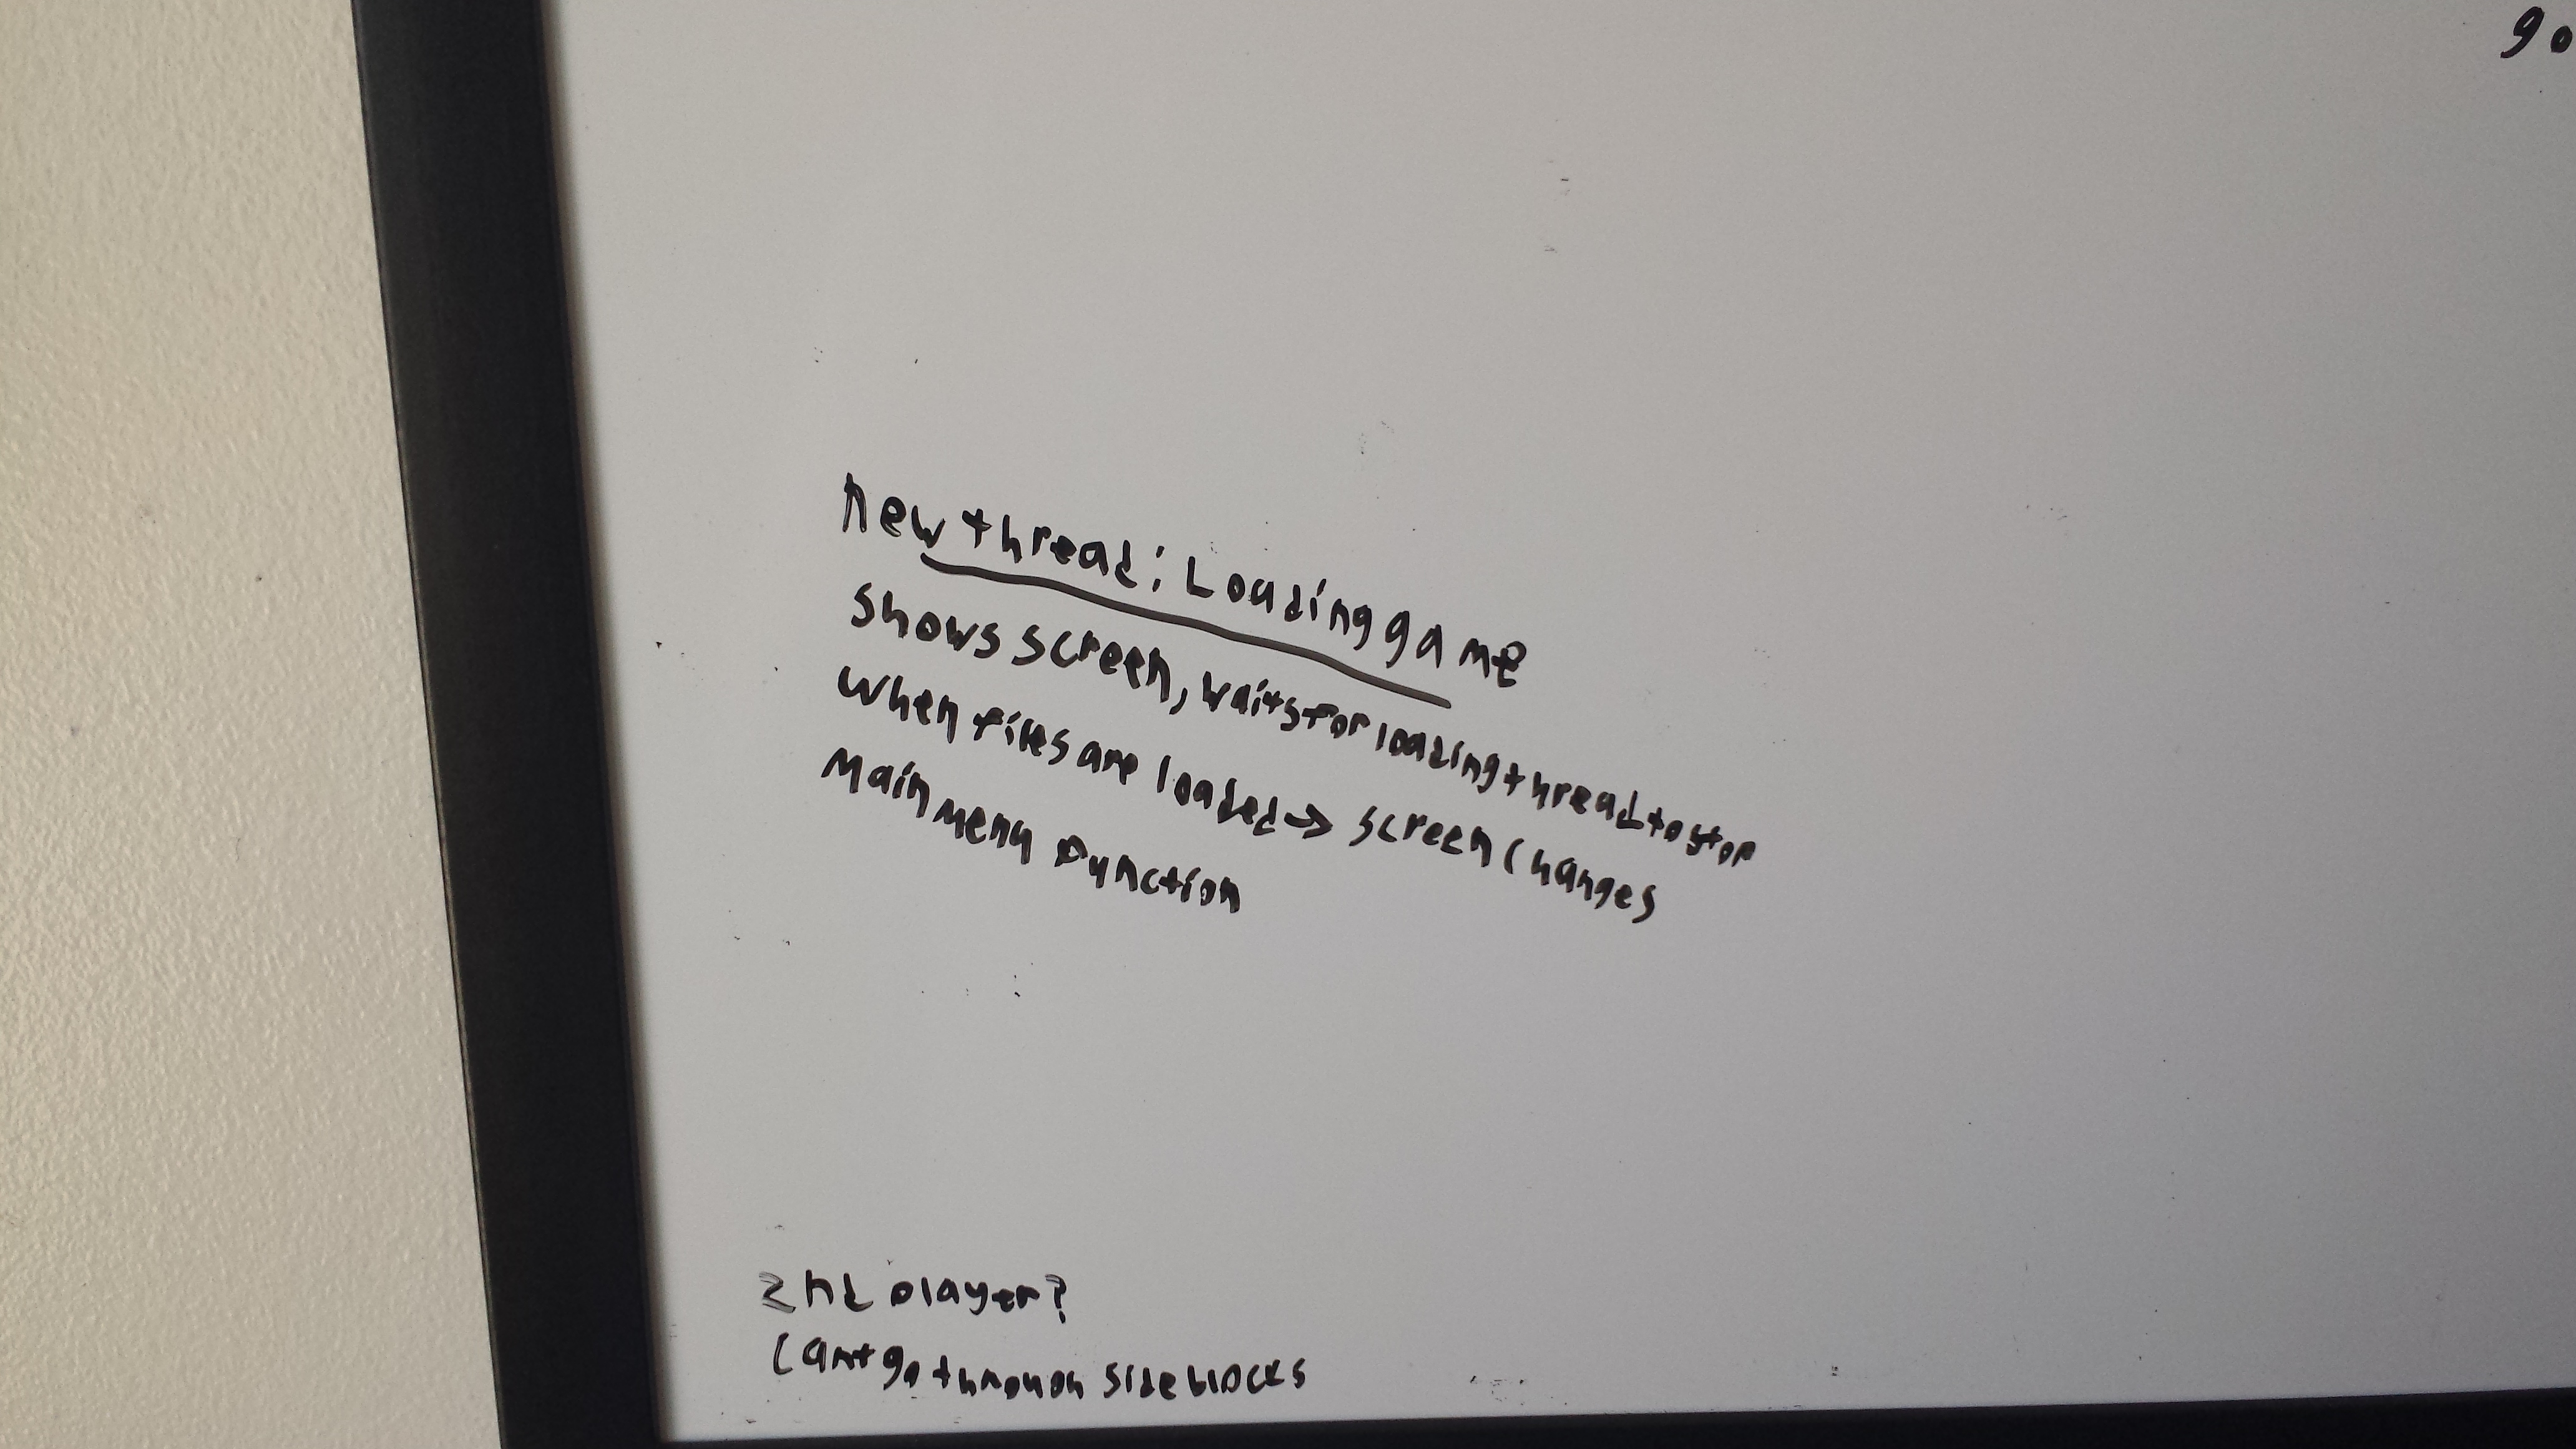 go
New thread: Loading game
Shows screen, waits for loading thread to stop
When files are loaded → screen changes
Main menu function
2nd player?
Cant go through side blocks